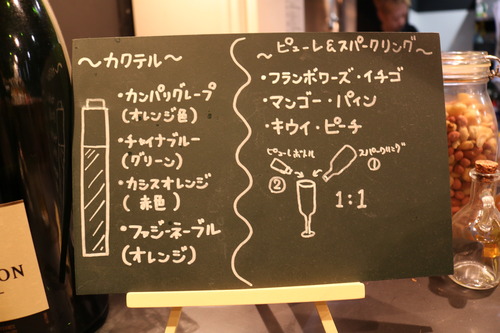 〜カクテル〜
・カンパリグレープ
(オレンジ色)
・チャイナブルー
(グリーン)
・カシスオレンジ
(赤色)
・ファジーネーブル
(オレンジ)
〜ピューレ&スパークリング〜
・フランボワーズ・イチゴ
・マンゴー・パイン
・キウイ・ピーチ
ピューレボトル
②
スパークリング
①
1:1
ON